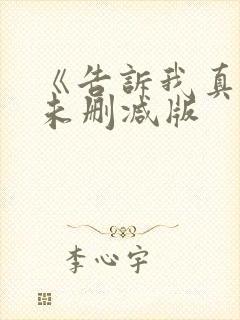 《告訴我真
未删减版
李心宇